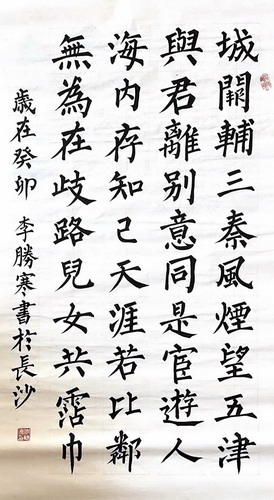 城闕輔三秦風煙望五津
與君離别意同是宦遊人
海內存知己天涯若比鄰
無為在歧路兒女共霑巾
歲在癸卯李勝寒書於長沙